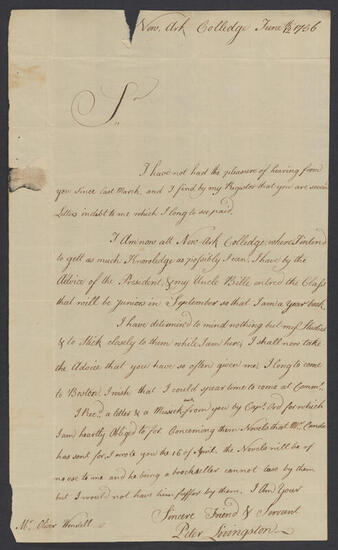 New Ark Colledge June 12th 1756
Sr
I have not had the pleasure of hearing from
you since last March, and I find by my Register that you are seven
Letters indebt to me which I long to see paid.
I Am now att New Ark Colledge where I intend
to gett as much Knowledge as possibly I can, I have by the
Advice of the President & my Uncle Bille entred the Class
that will be juniors in September so that I am a year back
I have determind to mind nothing but my Studies
& to Stick closely to them while I am here, I shall now take
the Advice that you have so often given me, I long to come
to Boston I wish that I could spear time to come at Commt.
I Recd. a letter & a Musick from you by Capt. Ord for which
I am heartly Obliged to for Concerning them Novels that Mr.
has sent for, I wrote you the 16 of April, the Novels will be of
no use to me and he being a bookseller cannot lose by them
but I would not have him suffer by them. I Am Your
Sincere Friend & Servant
Peter Livingston
Mr. Oliver Wendell